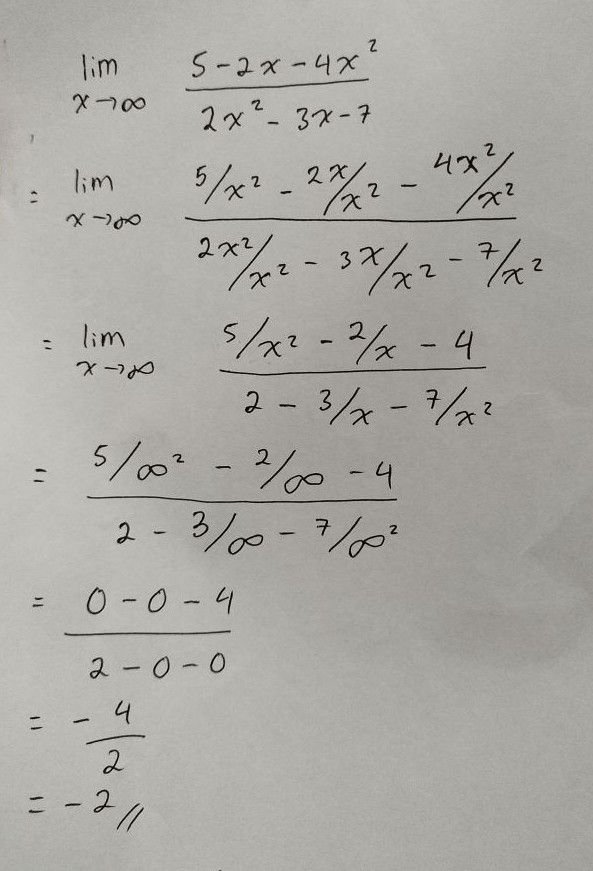 lim x→∞ (5 - 2x - 4x²) / (2x² - 3x - 7)
= lim x→∞ (5/x² - 2x/x² - 4x²/x²) / (2x²/x² - 3x/x² - 7/x²)
= lim x→∞ (5/x² - 2/x - 4) / (2 - 3/x - 7/x²)
= (5/∞² - 2/∞ - 4) / (2 - 3/∞ - 7/∞²)
= (0 - 0 - 4) / (2 - 0 - 0)
= - 4/2
= -2 //